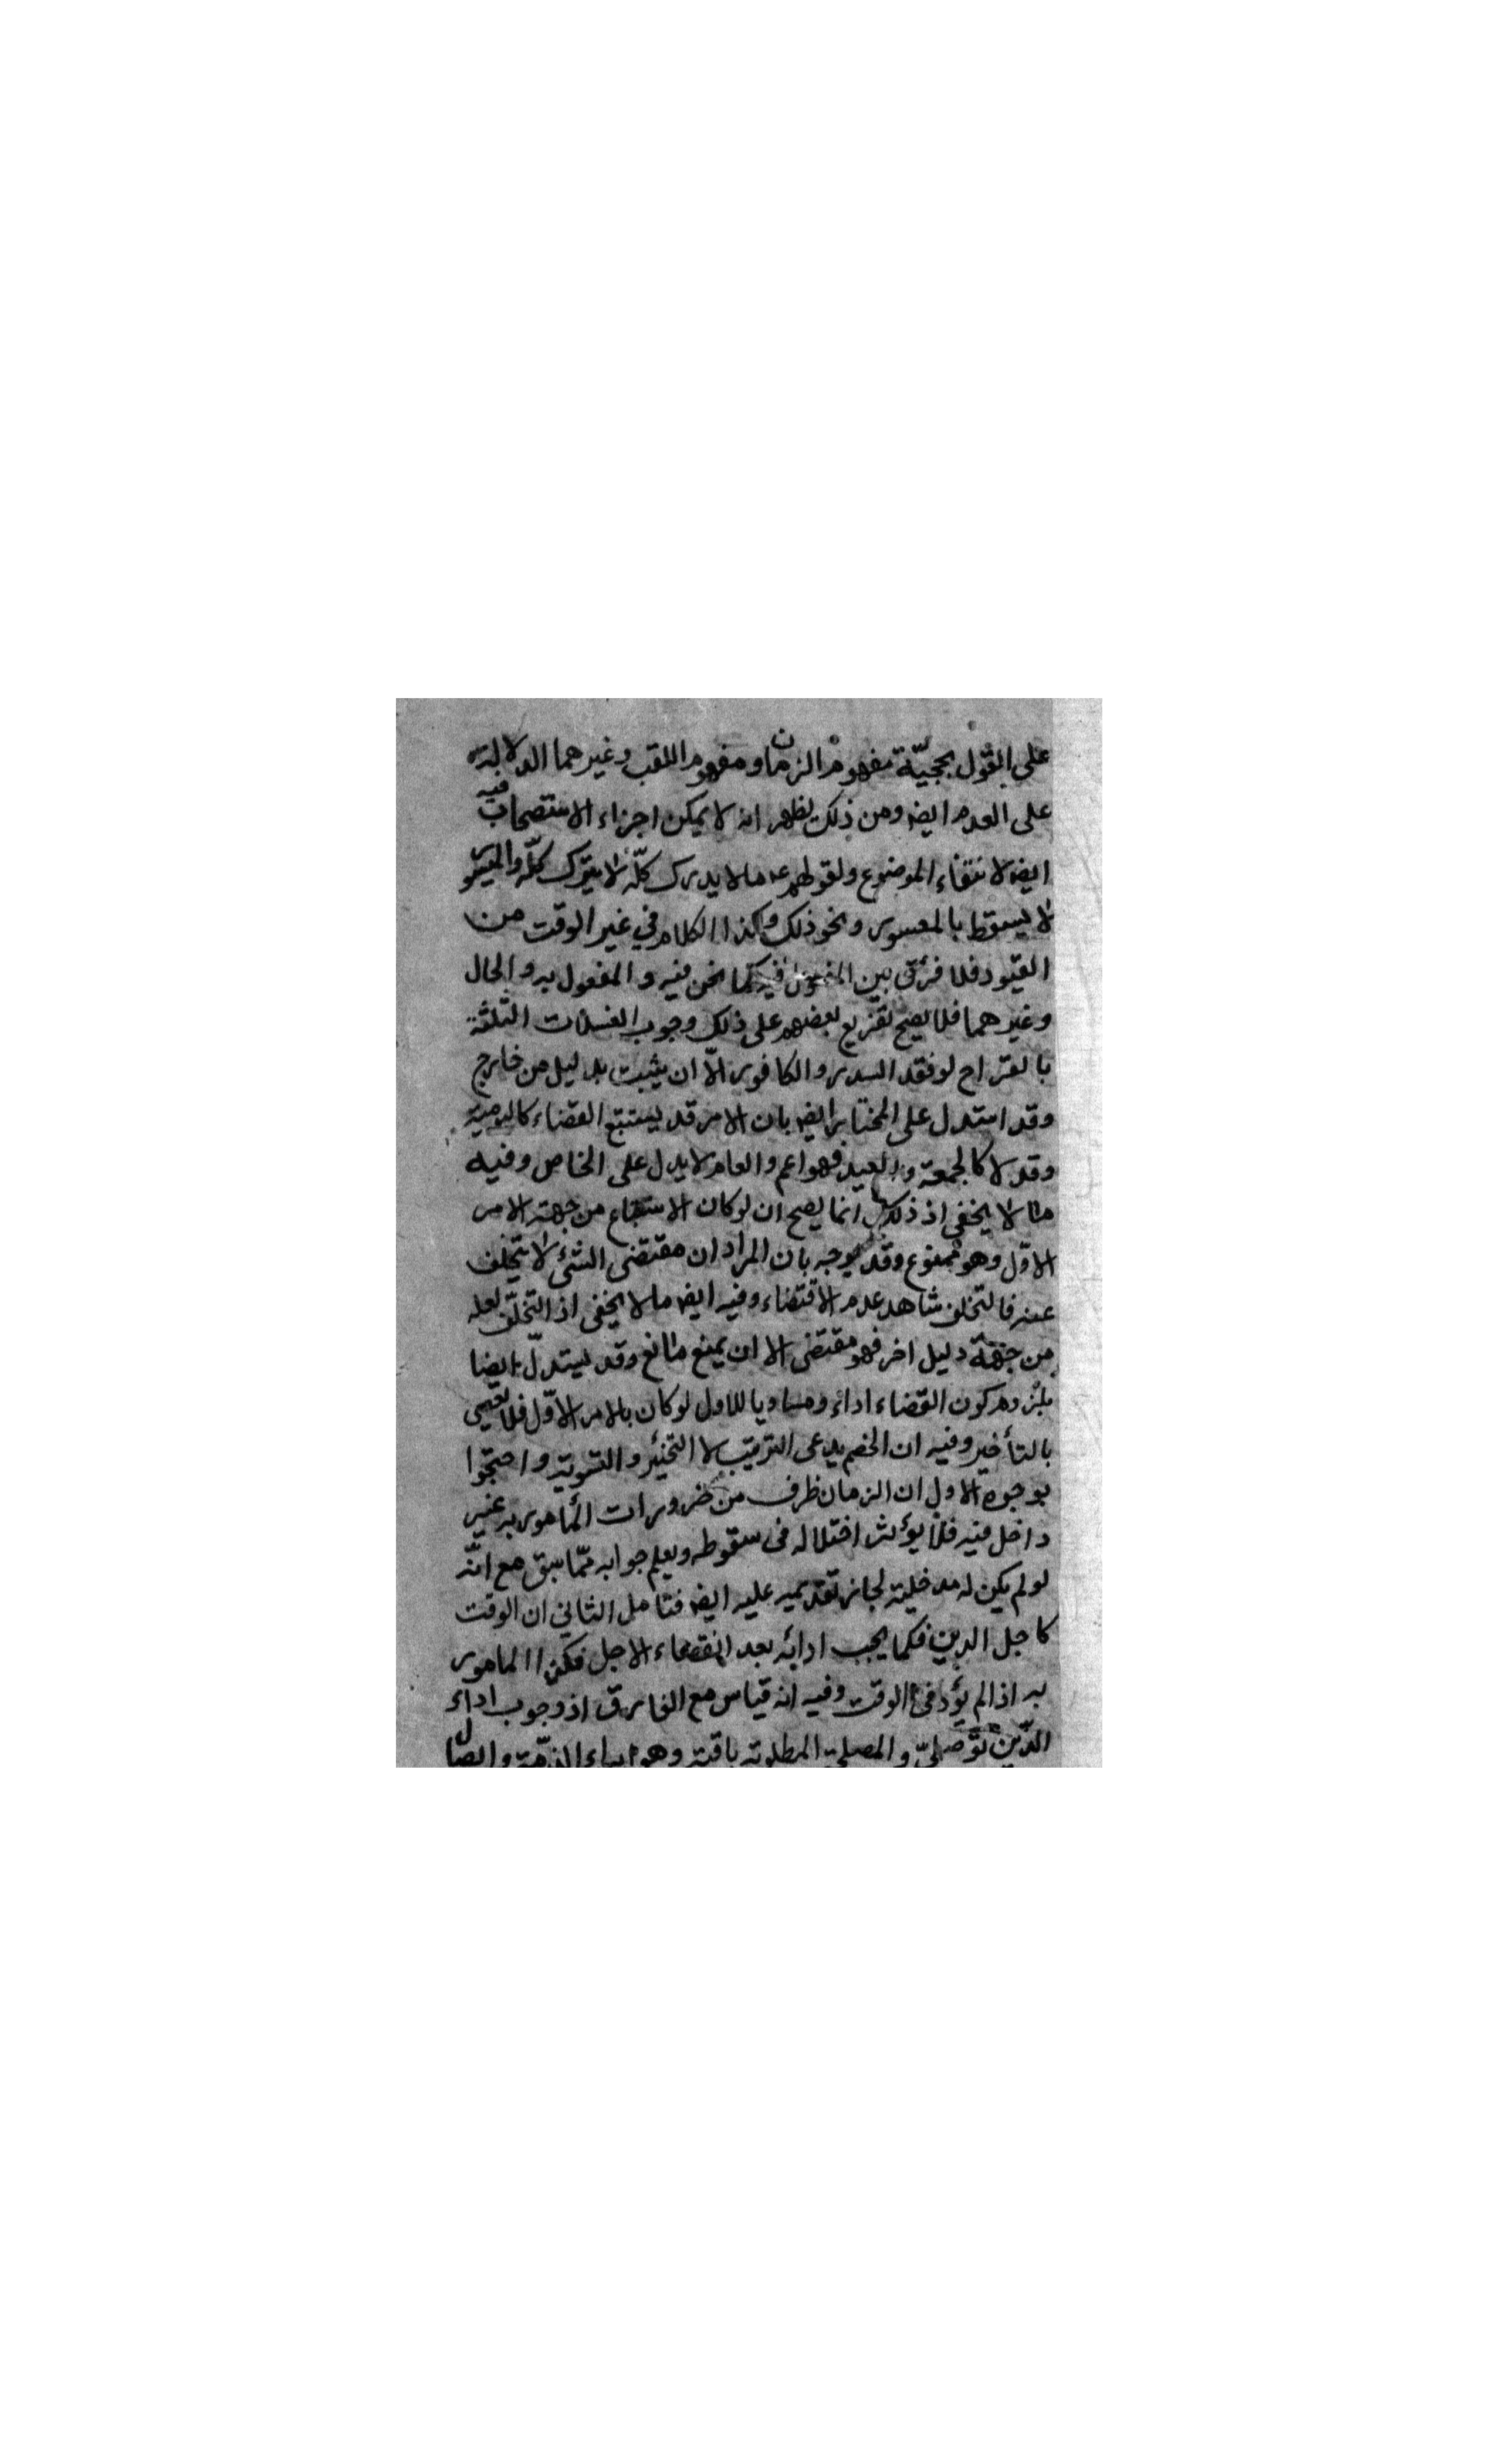 على القول بحجيّة مفهوم الزمان ومفهوم اللقب وغيرهما الدلالة
على العدم ايضه ومن ذلك يظهر انه لا يمكن اجراء الاستصحاب فيه
ايضه لانتفاء الموضوع ولقولهم عه ما لا يدرك كلّه لا يترك كلّه والميسور
لا يسقط بالمعسور ونحو ذلك وكذا الكلام في غير الوقت من
القيود فلا فرق بين المفعول فيه كما نحن فيه والمفعول به والحال
وغيرهما فلا يصح تفريع بعضهم على ذلك وجوب الغسلات الثلثة
بالقراح لو فقد السدر والكافور الّا ان يثبت بدليل من خارج
وقد استدل على المختار ايضه بان الامر قد يستتبع القضاء كاليومية
وقد لا كالجمعة والعيد فهو اعم والعام لا يدل على الخاص وفيه
ما لا يخفى اذ ذلك انما يصح ان لو كان الاستتباع من جهة الامر
الاوّل وهو ممنوع وقد يوجه بان المراد ان مقتضى الشئ لا يتخلف
عنه فالتخلف شاهد عدم الاقتضاء وفيه ايضه ما لا يخفى اذ التخلّف لعله
من جهة دليل اخر فهو مقتضى الا ان يمنع مانع وقد يستدلّ ايضا
بلزوم كون القضاء اداء ومساويا للاول لو كان بالامر الاوّل فلا يعصى
بالتأخير وفيه ان الخصم يدعى الترتيب لا التخيير والتسوية واحتجوا
بوجوه الاول ان الزمان ظرف من ضرورات المأمور به غير
داخل فيه فلا يؤثر اختلاله فى سقوطه ويعلم جوابه ممّا سبق مع انّه
لو لم يكن له مدخلية لجاز تقديمه عليه ايضه فتامل الثاني ان الوقت
كاجل الدين فكما يجب ادائه بعد انقضاء الاجل فكذا المامور
به اذا لم يؤد في الوقت وفيه انه قياس مع الفارق اذ وجوب اداء
الدّين توّصليّ والمصلحة المطلوبة باقية وهو ابراء الذمّة وايصال